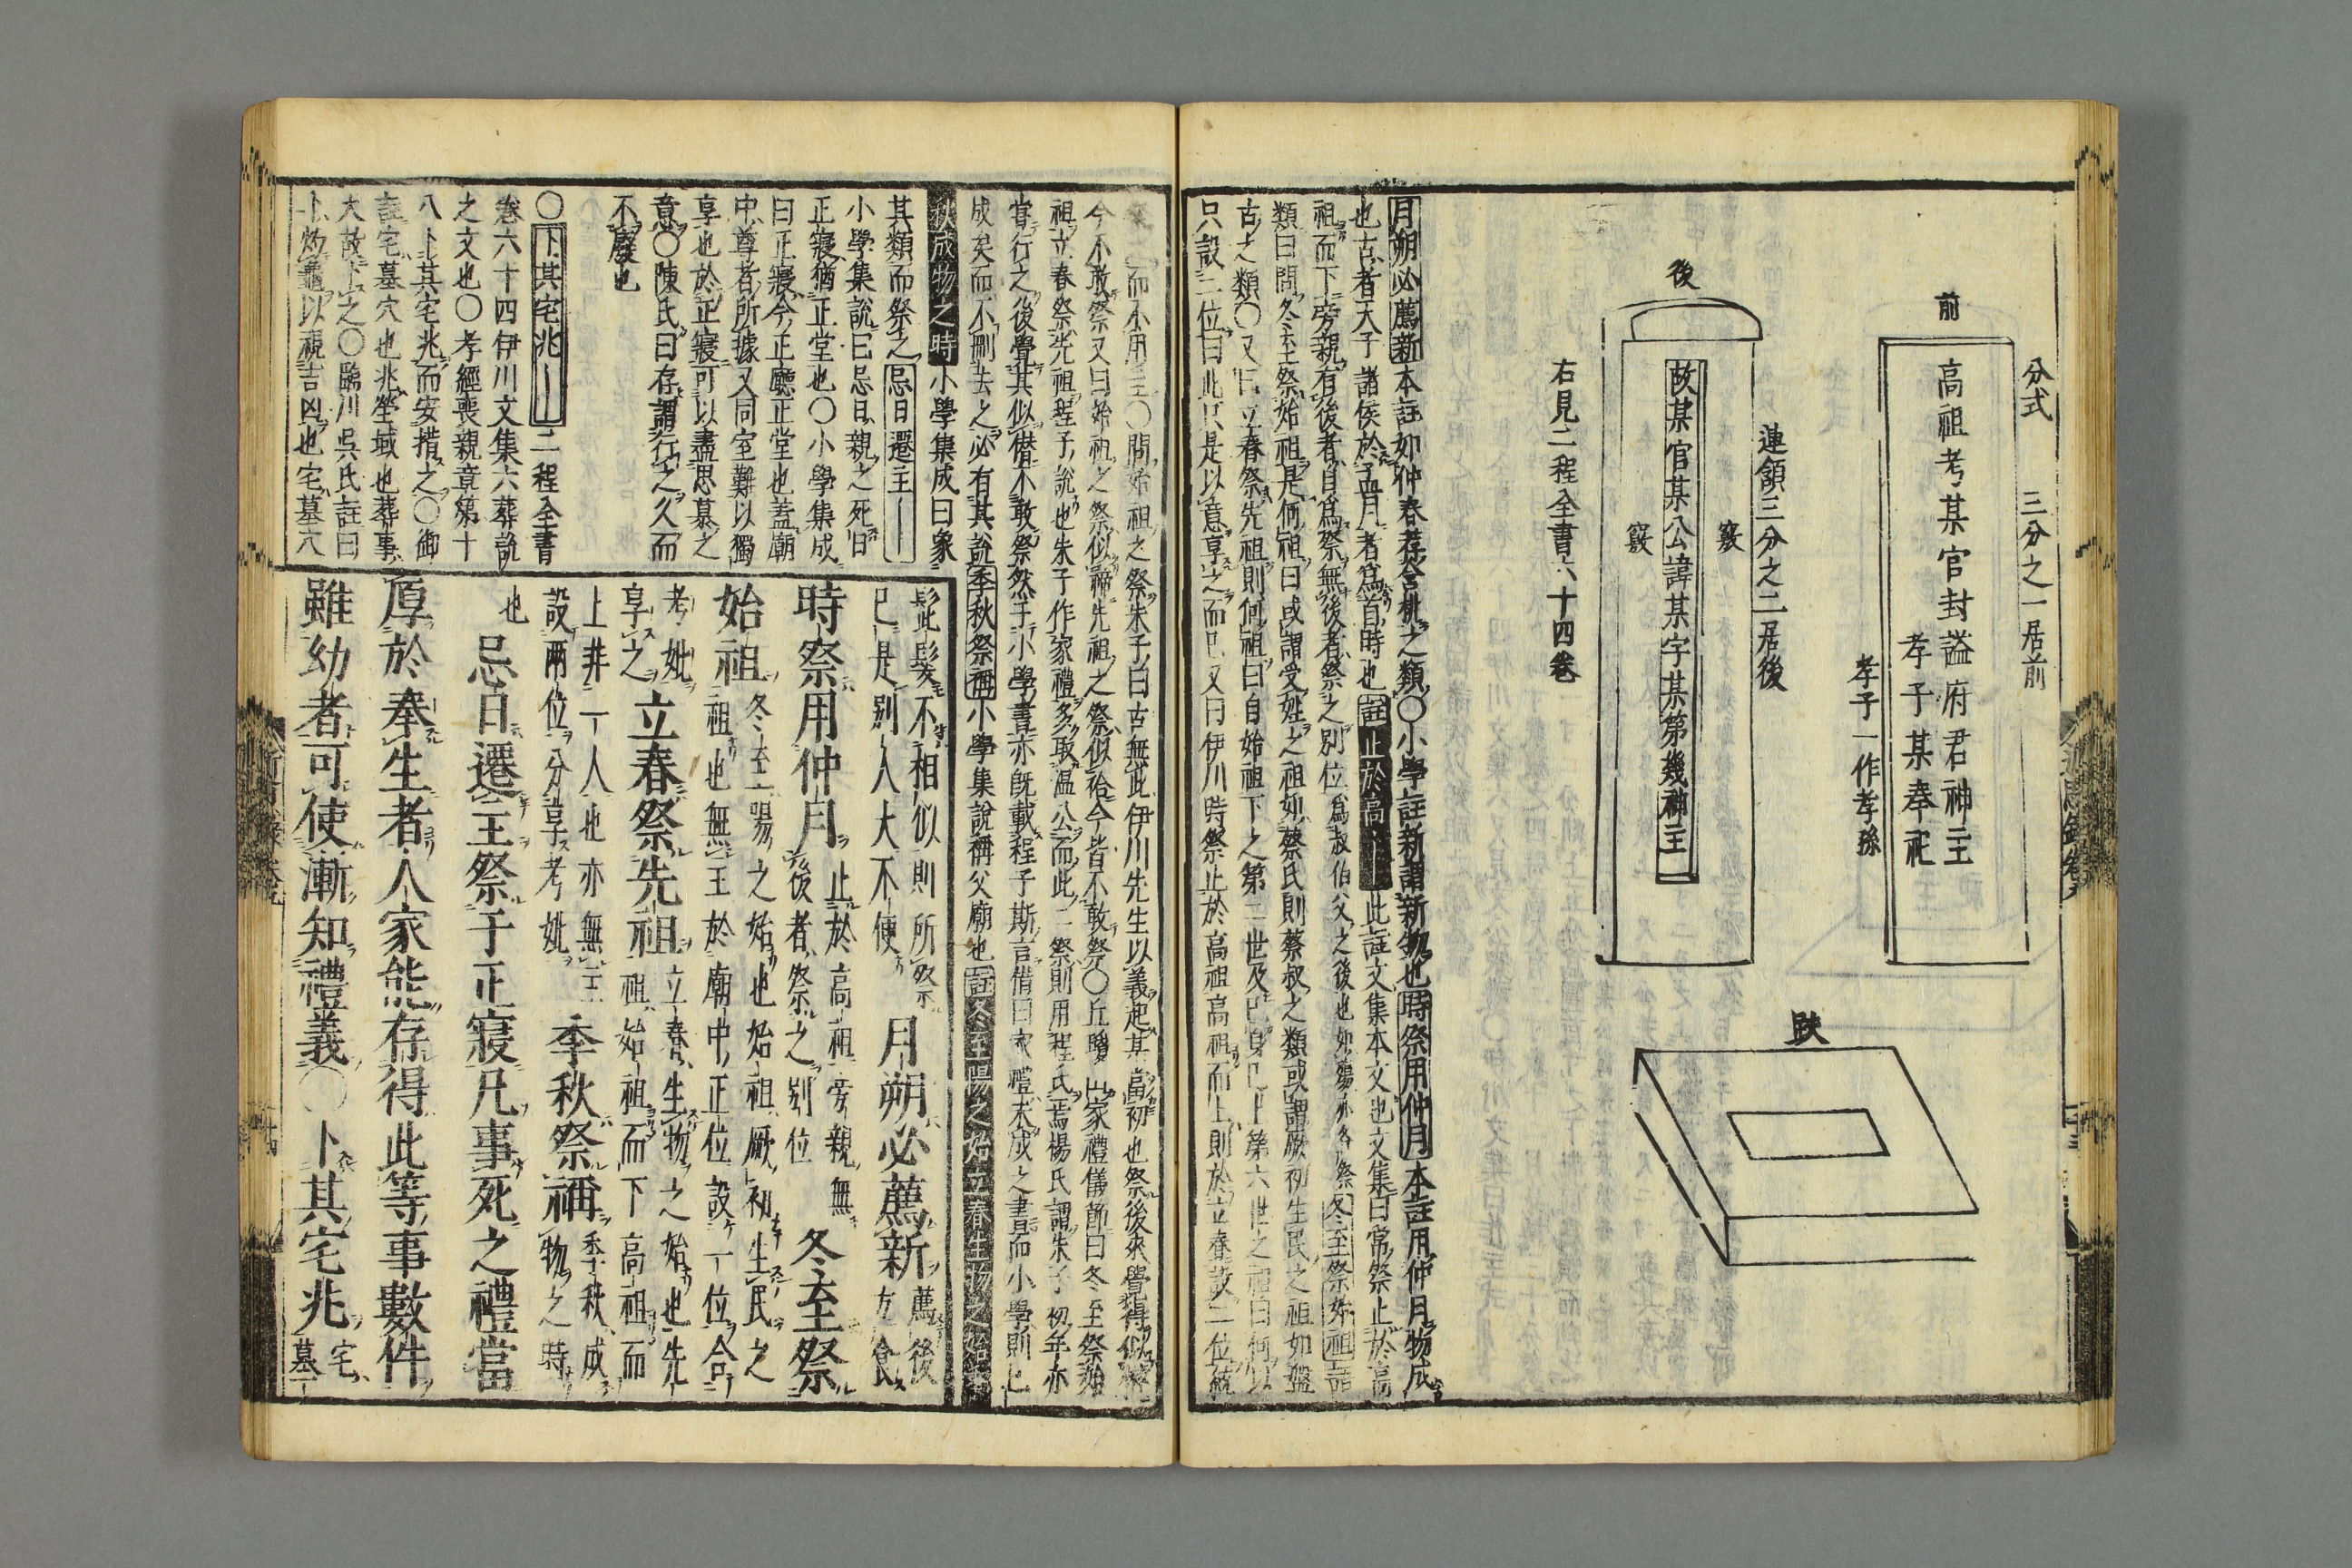 分式　三分之一居前
前
高祖考某官封謚府君神主
孝子某奉祀
孝子一作孝孫
連領三分之二居後
後
竅
故某官某公諱某字某第幾神主
竅
右見二程全書六十四卷
趺
月朔必薦新本註如仲春荐含桃之類○小學註新謂新物也時祭用仲月本註用仲月物成
也古者天子諸侯於孟月者爲首時也註止於高｜此註文集本文也文集曰常祭止於高
祖而下旁親有後者自爲祭無後者祭之別位爲叔伯父之後也如殤亦各祭冬至祭始祖語
類曰問冬至祭始祖是何祖曰或謂受姓之祖如蔡氏則蔡叔之類或謂厥初生民之祖如盤
古之類○又曰立春祭先祖則何祖曰自始祖下之第二世及已身已上第六世之祖曰何以
只設二位曰此只是以意享之而已又曰伊川時祭止於高祖高祖而上則於立春設二位統
而不用主○問始祖之祭朱子曰古無此伊川先生以義起某當初也祭後來覺得似僭
今不敢祭又曰始祖之祭似禘先祖之祭似祫今皆不敢祭○丘瓊山家禮儀節曰冬至祭始
祖立春祭先祖程子說也朱子作家禮多取温公而此二祭則用程氏焉楊氏謂朱子初年亦
嘗行之後覺其似僭不敢祭然于小學書亦旣載程子斯言借曰家禮未成之書而小學則已
成矣而不刪去之必有其說季秋祭禰小學集說禰父廟也註冬至陽之始立春生物之始季
秋成物之時小學集成曰象
其類而祭之忌日遷主｜
小學集說曰忌日親之死日
正寢猶正堂也○小學集成
曰正寢今正廳正堂也蓋廟
中尊者所據又同室難以獨
享也於正寢可以盡思慕之
意○陳氏曰存謂行之久而
不廢也
○卜其宅兆｜二程全書
卷六十四伊川文集六葬說
之文也○孝經喪親章第十
八卜其宅兆而安措之○御
註宅墓穴也兆塋域也葬事
大故卜之○臨川吳氏註曰
卜灼龜以視吉凶也宅墓穴
髭髮不相似則所祭
已是別人大不便
月朔必薦新
薦後
方食
時祭用仲月
止於高祖旁親無
後者祭之別位
冬至祭
始祖
冬至陽之始也始祖厥初生民之
祖也無主於廟中正位設一位合
考妣
享之
立春祭先祖
立春生物之始也先
祖始祖而下高祖而
上非一人也亦無主
設兩位分享考妣
季秋祭禰
季秋成
物之時
也
忌日遷主祭于正寢凡事死之禮當
厚於奉生者人家能存得此等事數件
雖幼者可使漸知禮義○卜其宅兆
宅
墓